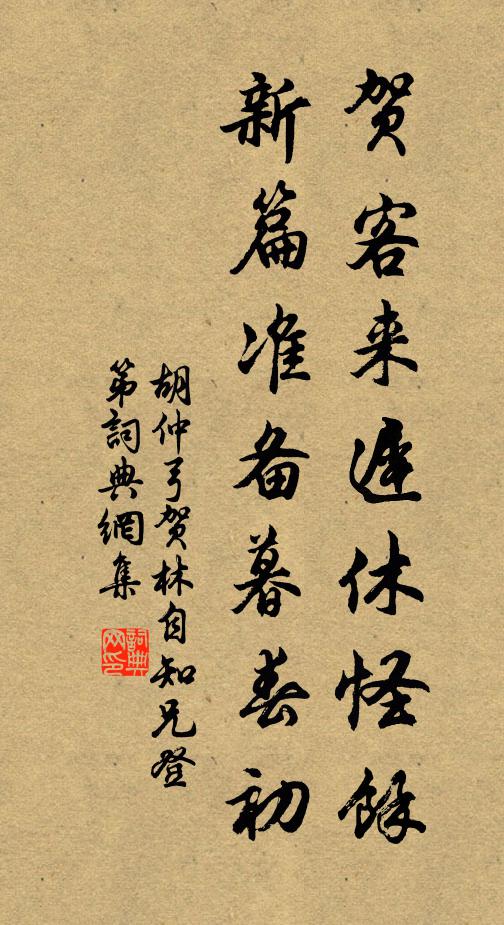 贺客来遲休怪餘
新篇准备暮春初
胡仲弓贺林自知兄登
第詞典網集
詞典网印